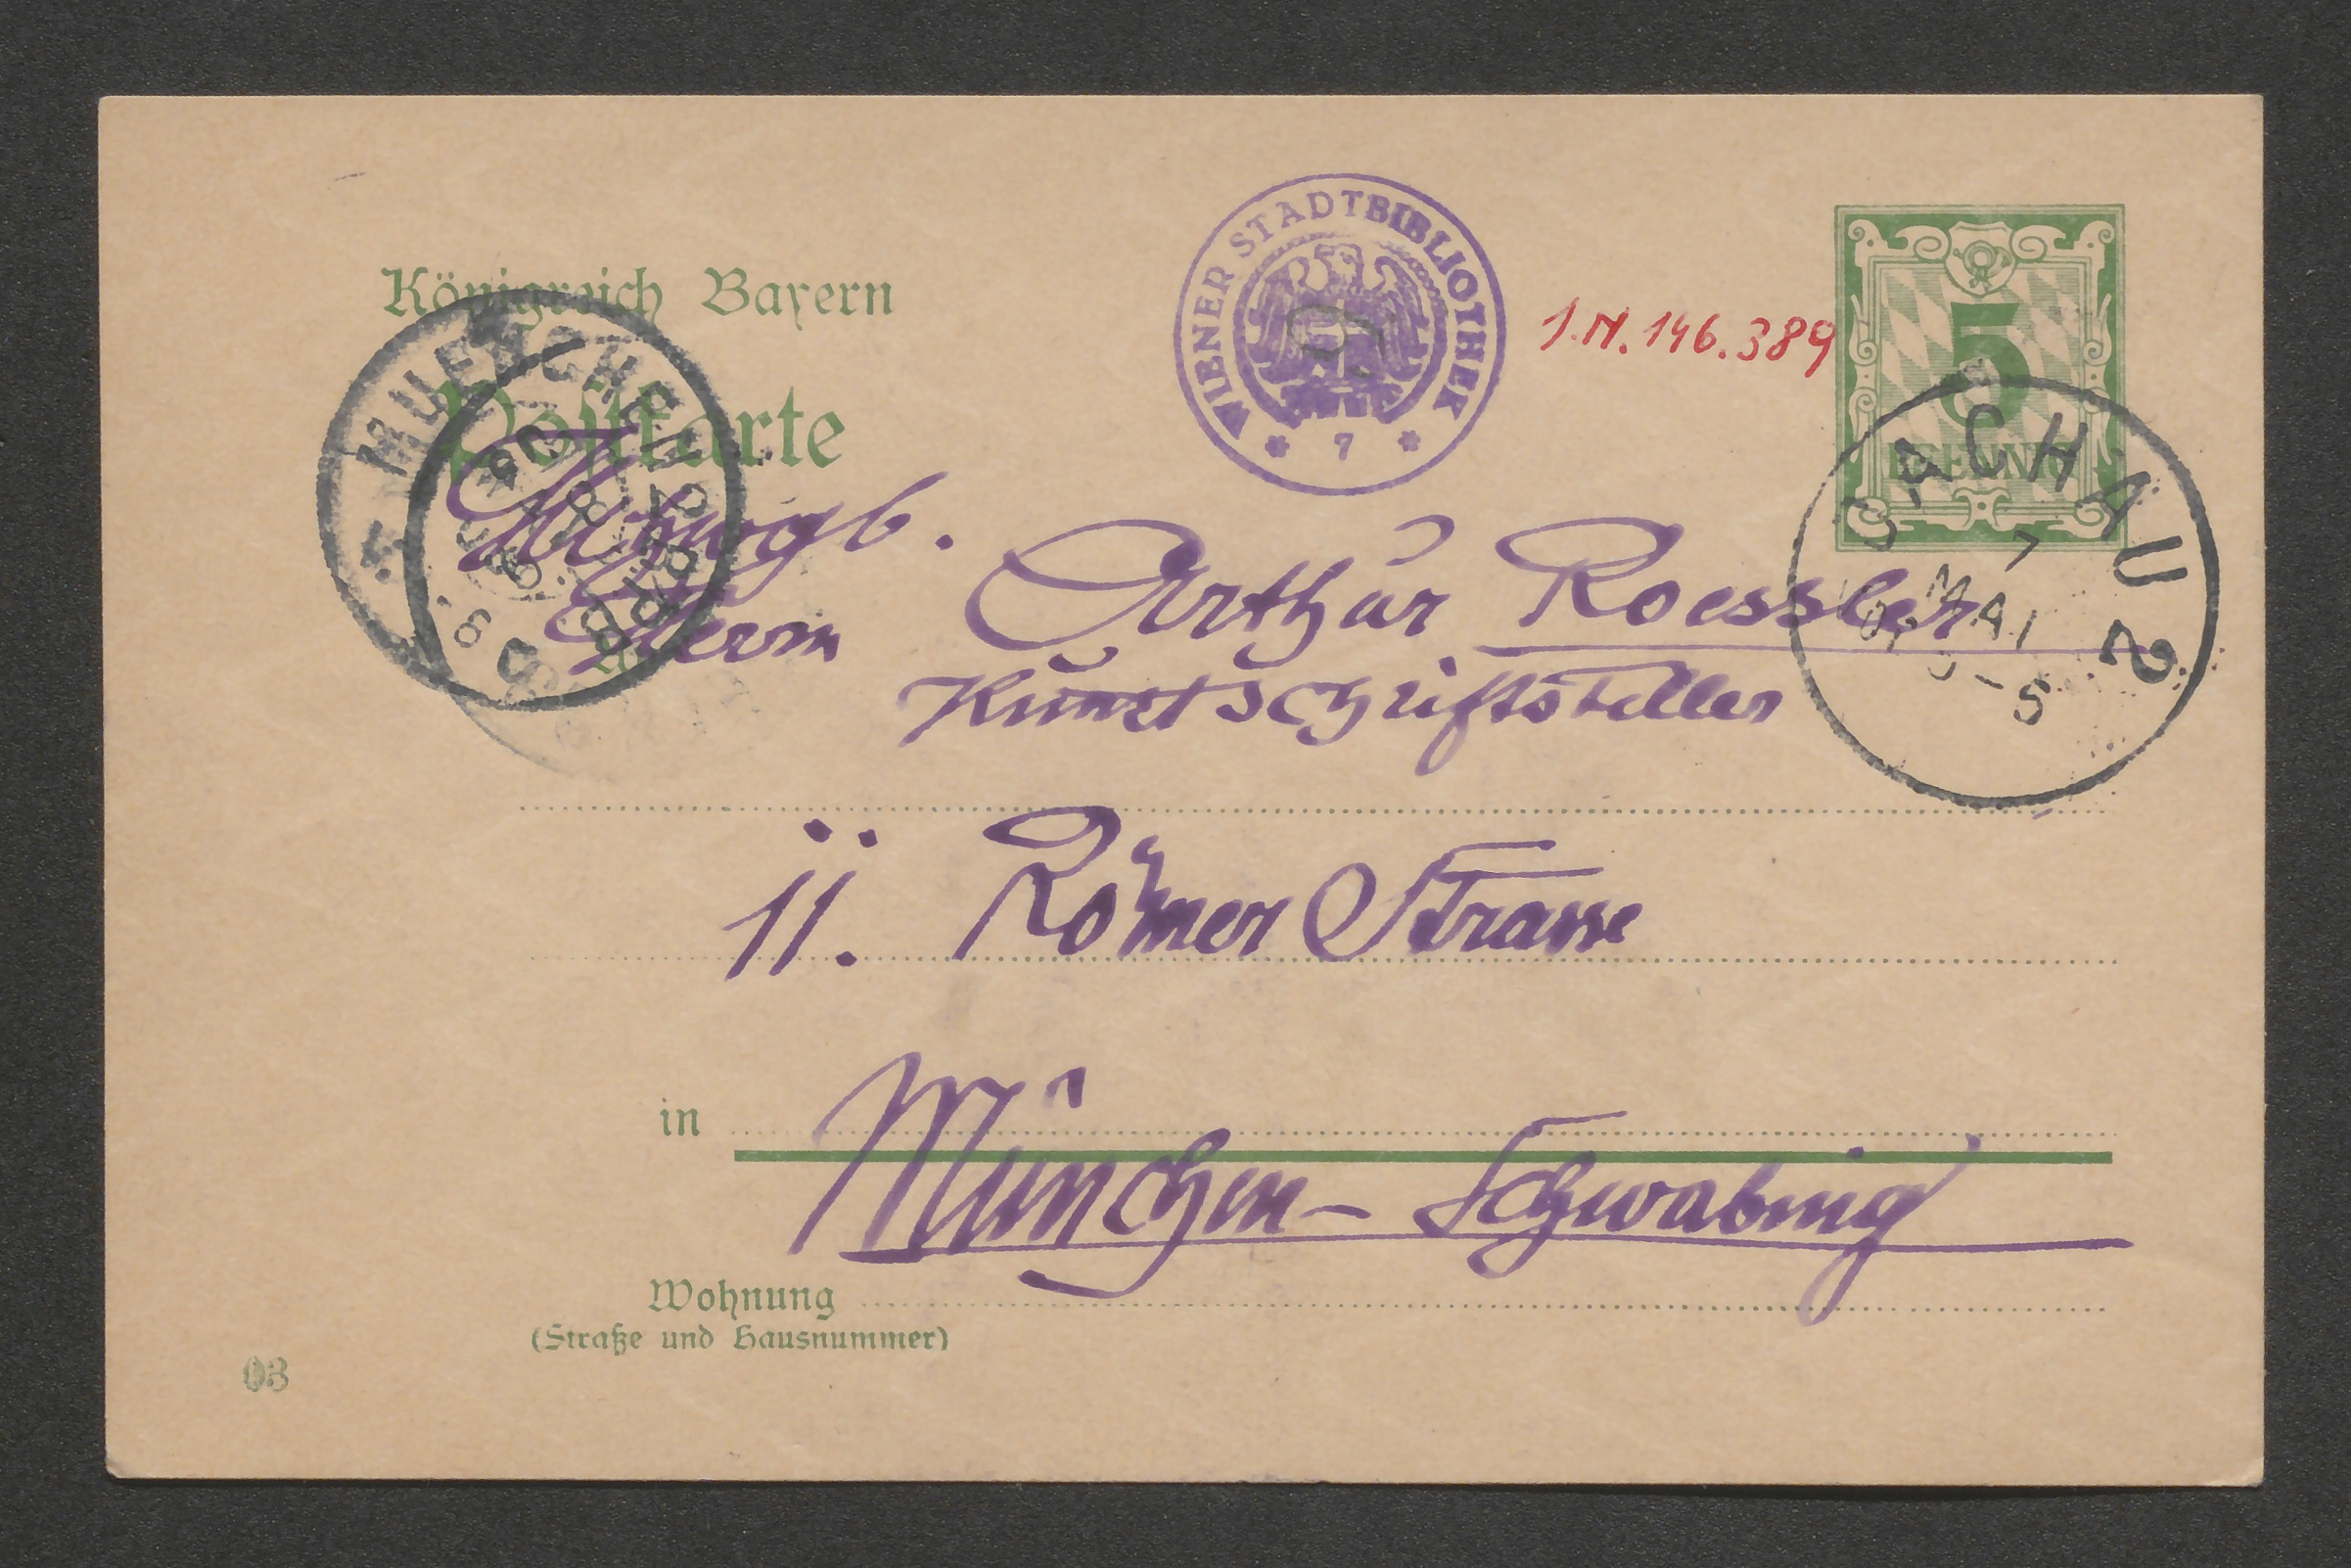 Königreich Bayern
Postkarte
WIENER STADTBIBLIOTHEK
* 7 *
I.N. 146.389
5
PFENNIG
DACHAU 2
7
MAI
MUENCHEN
Hochwgb.
Herrn Arthur Roessler
Kunstschriftsteller
11. Römer Strasse
in München - Schwabing
Wohnung
(Straße und Hausnummer)
03